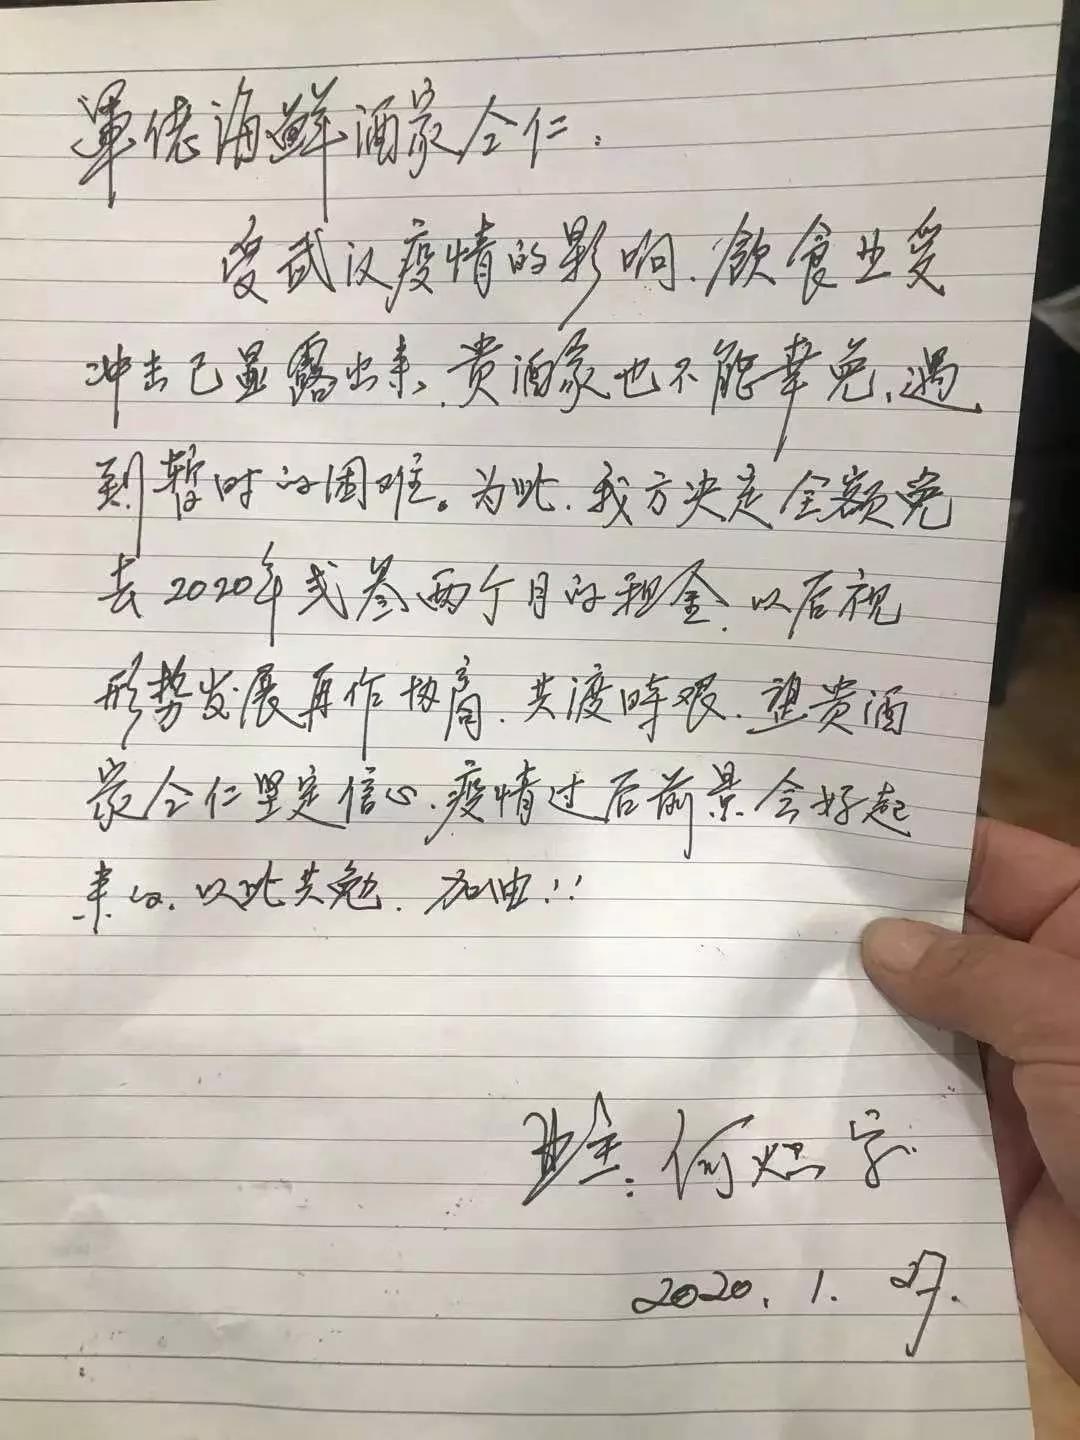 軍佬海鲜酒家仝仁：
受武汉疫情的影响，飲食业受
冲击已显露出来，贵酒家也不能幸免，遇
到暂时的困难。为此，我方决定全额免
去2020年弍叁两个月的租金，以后视
形势发展再作协商，共渡時艰，望贵酒
家仝仁坚定信心，疫情过后前景会好起
来的，以此共勉，加油!!
业主：何
2020.1.27.